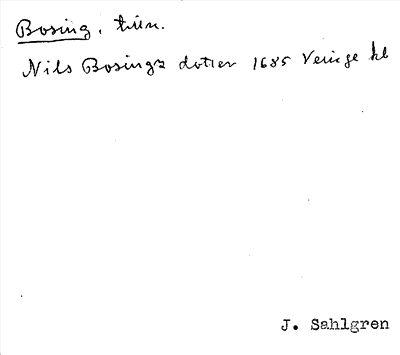 Bosing, tilln.
Nils Bosings dotter 1685 Veinge kb
J. Sahlgren